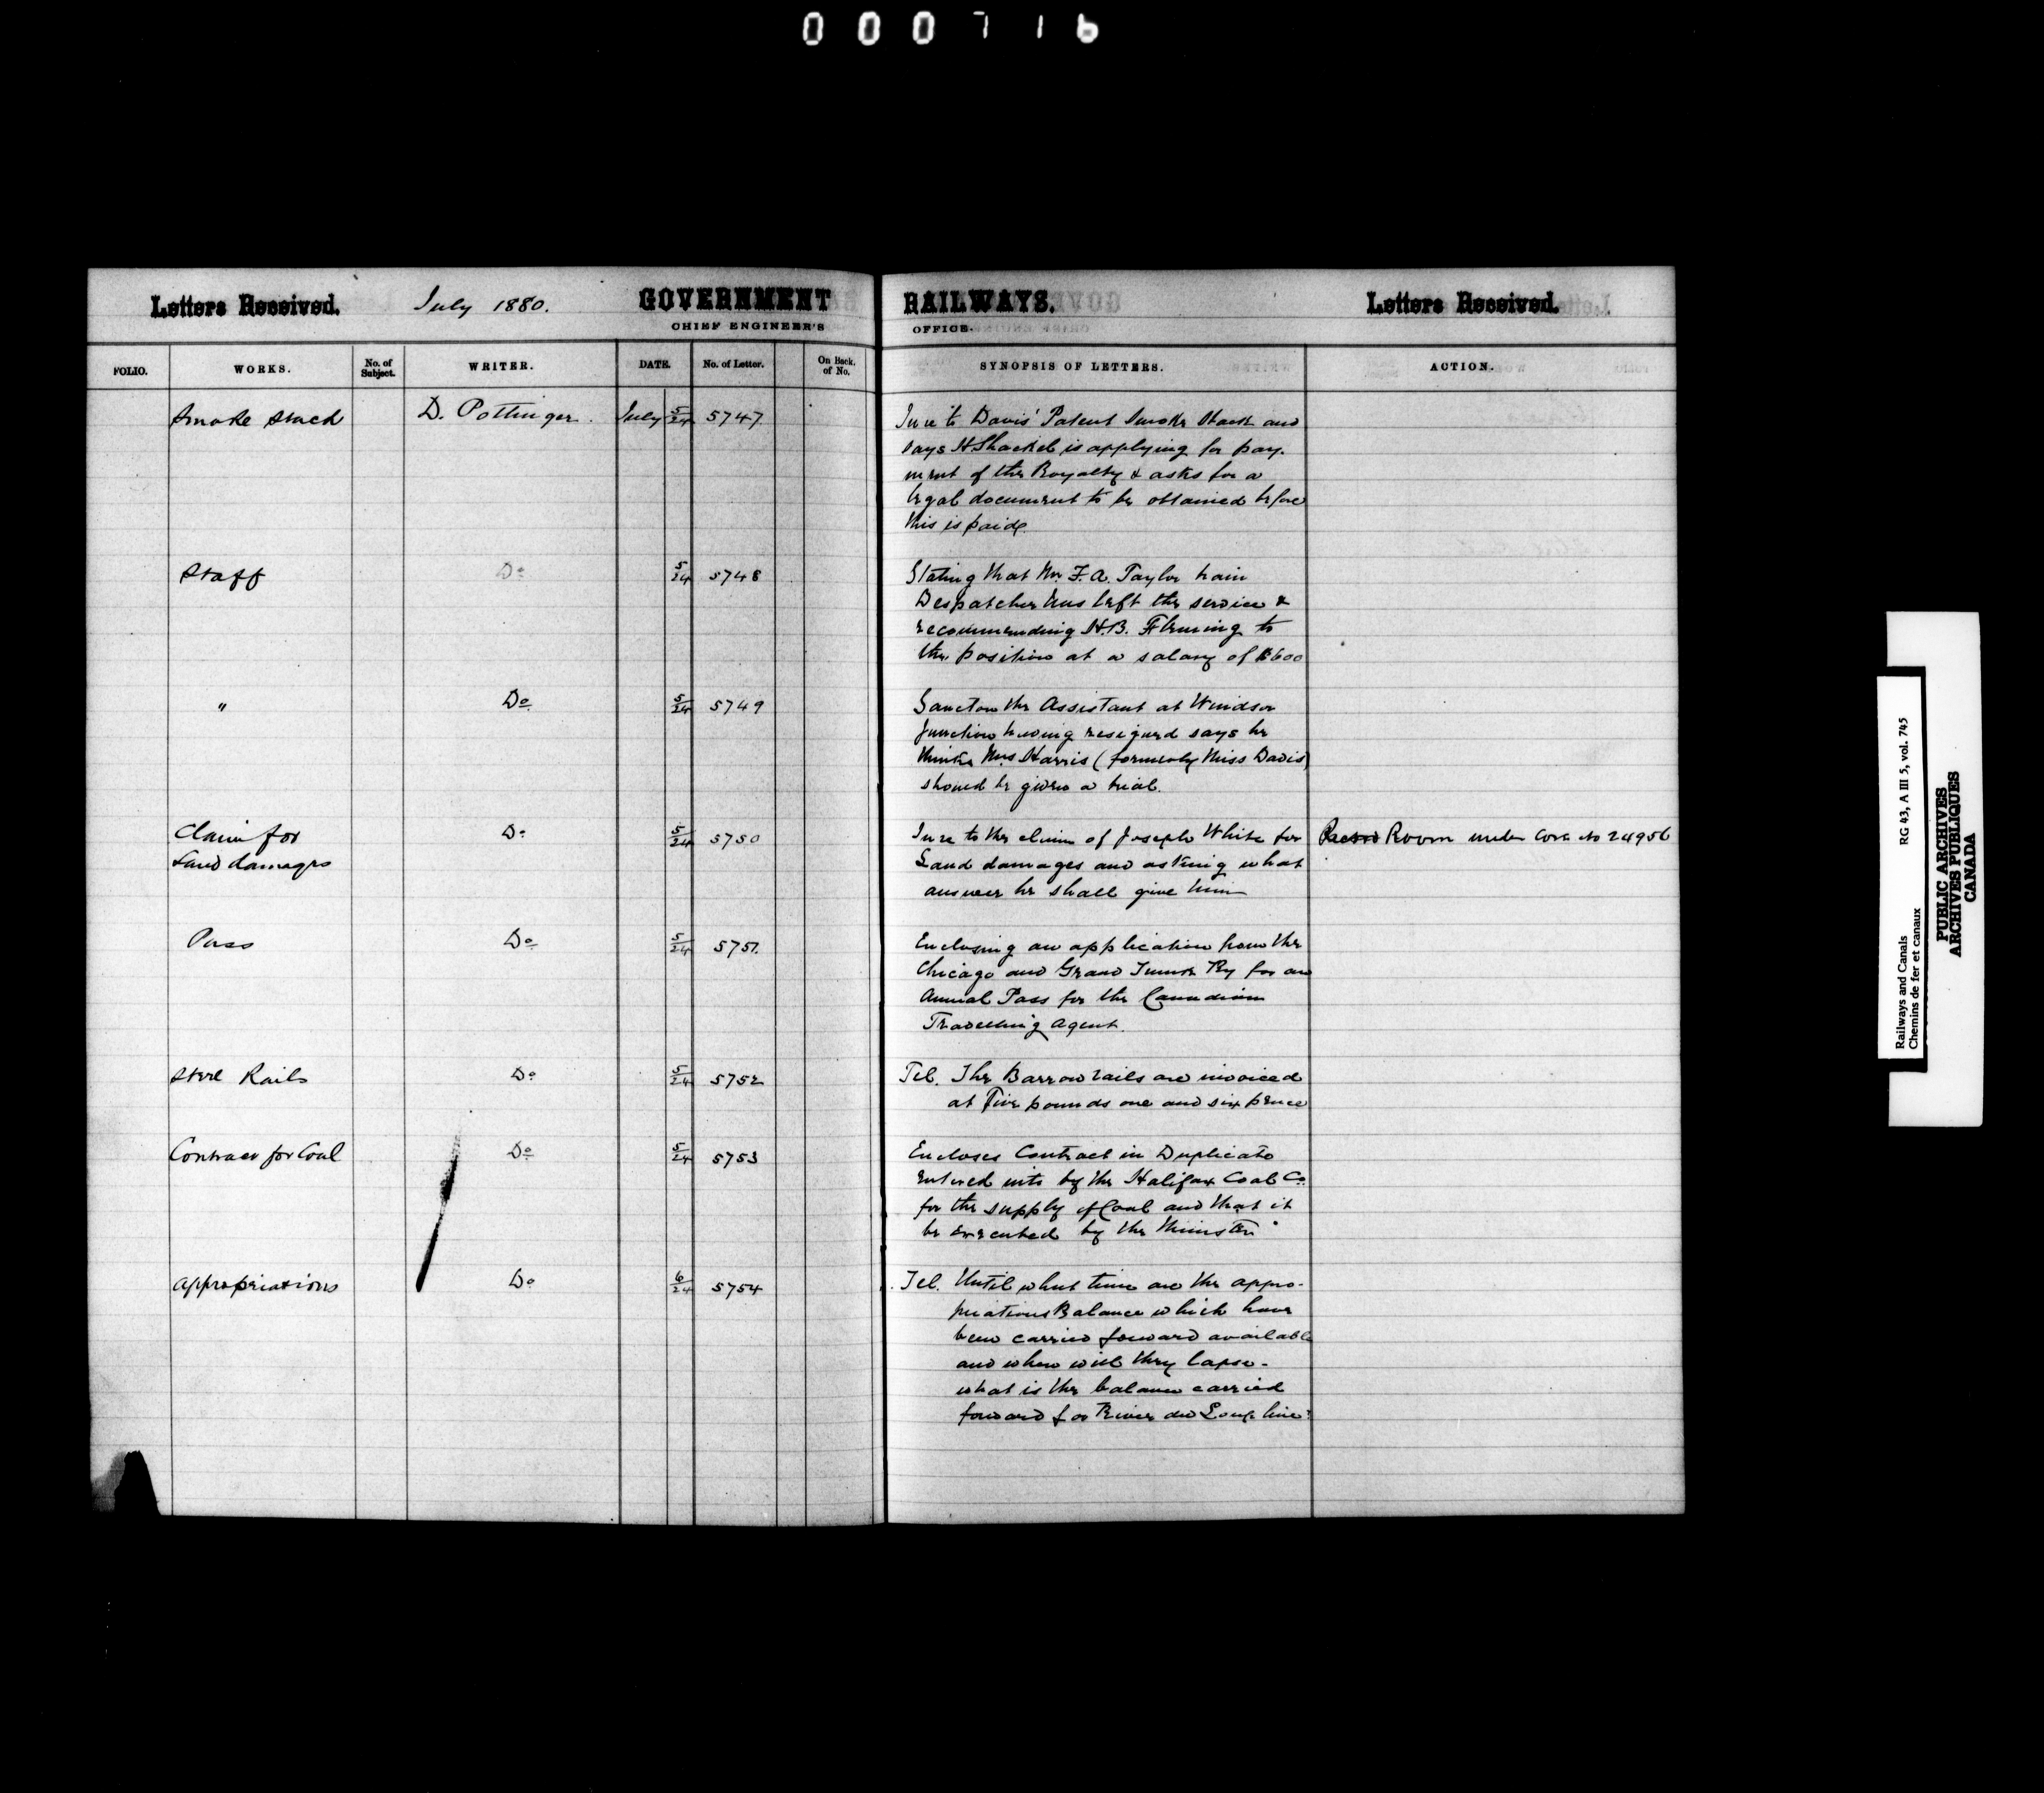 000716
Letters Received. July 1880. GOVERNMENT RAILWAYS. Letters Received.
CHIEF ENGINEER'S OFFICE.
FOLIO. WORKS. No. of Subject. WRITER. DATE. No. of Letter. On Back. of No. SYNOPSIS OF LETTERS. ACTION.
Smoke Stack D. Pottinger. July 5/24 5747. In re to Davis' Patent Smoke Stack and
says H. Shackel is applying for pay-
ment of the Royalty & asks for a
legal document to be obtained before
this is paid.
Staff Do 5/24 5748 Stating that Mr F. A. Taylor train
Despatcher has left the service &
recommending H. B. Fleming to
the position at a salary of $600
" Do 5/24 5749 Sancton the Assistant at Windsor
Junction having resigned says he
thinks Mrs Harris (formerly Miss Davis)
should be given a trial.
Claim for Do 5/24 5750 In re to the claim of Joseph White for Room under Cora No 24956
Land damages Land damages and asking what
answer he shall give him
Pass Do 5/24 5751. Enclosing an application from the
Chicago and Grand Trunk Ry for an
Annual Pass for the Canadian
Travelling Agent.
Steel Rails Do 5/24 5752 Tel. The Barrow rails are invoiced
at Five pounds one and six pence
Contract for Coal Do 5/24 5753 Encloses Contract in Duplicate
entered into by the Halifax Coal Co.
for the supply of Coal and that it
be executed by the Minister
Appropriations Do 6/24 5754 Tel. Until what time are the appro-
priations Balance which have
been carried forward available
and when will they lapse-
what is the balance carried
forward for River du Loup line?
Railways and Canals RG 43, A III 5, vol. 745
Chemins de fer et canaux
PUBLIC ARCHIVES
ARCHIVES PUBLIQUES
CANADA